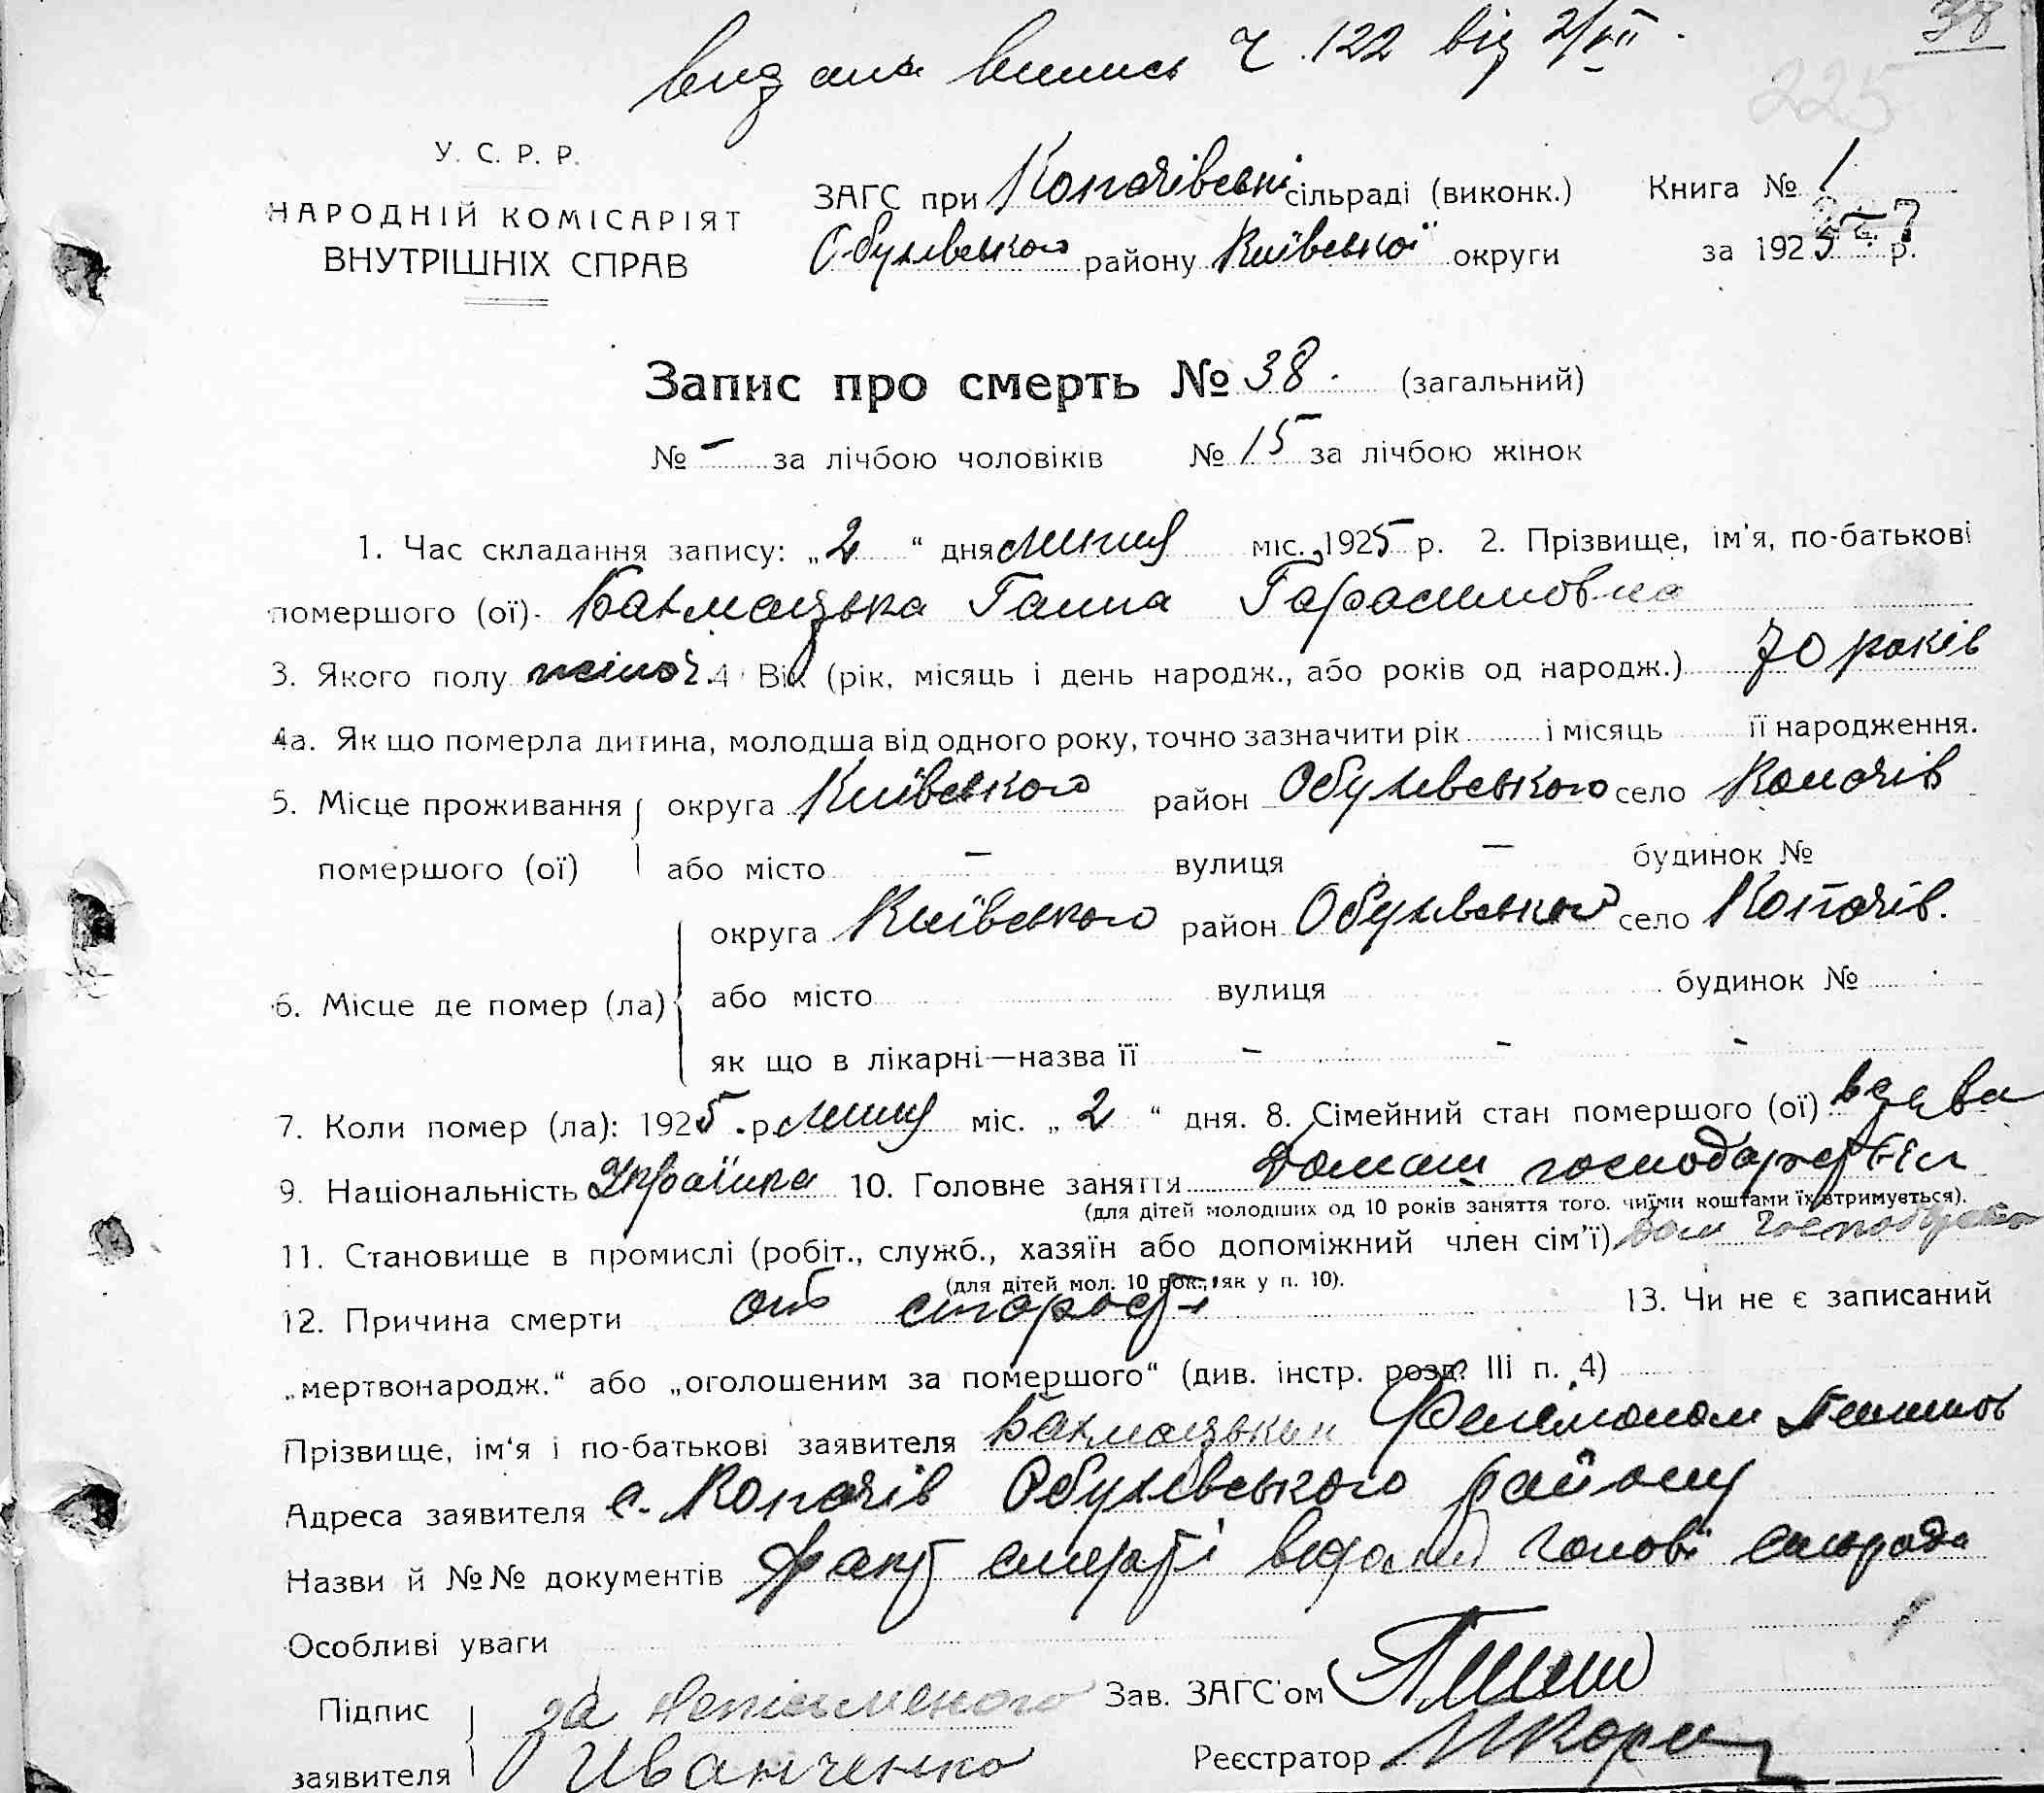 видана випись Ч. 122 від 2/VII.
38
225
У. С. Р. Р.
НАРОДНІЙ КОМІСАРІЯТ
ВНУТРІШНІХ СПРАВ
ЗАГС при Копачівські сільраді (виконк.) Книга № 1
Обухівського району Київської округи за 1925 р.
Запис про смерть № 38. (загальний)
№ – за лічбою чоловіків № 15 за лічбою жінок
1. Час складання запису: „2“ дня липня міс. 1925 р. 2. Прізвище, ім'я, по-батькові
помершого (ої) Бахмацька Ганна Гарасимовна
3. Якого полу жіноч. 4 Вік (рік, місяць і день народж., або років од народж.) 70 років
4а. Як що померла дитина, молодша від одного року, точно зазначити рік і місяць її народження.
5. Місце проживання округа Київського район Обухівського село Копачів
помершого (ої) або місто – вулиця – будинок №
округа Київського район Обухівського село Копачів.
6. Місце де помер (ла) або місто вулиця будинок №
як що в лікарні—назва її – – –
7. Коли помер (ла): 1925 р. липня міс. „2“ дня. 8. Сімейний стан помершого (ої) вдова
9. Національність Українка 10. Головне заняття Домаш господарстві
(для дітей молодших од 10 років заняття того, чиїми коштами їх втримується).
11. Становище в промислі (робіт., служб., хазяїн або допоміжний член сім'ї) дом господарка
(для дітей мол. 10 рок., як у п. 10).
12. Причина смерти от старости 13. Чи не є записаний
„мертвонародж.“ або „оголошеним за помершого“ (див. інстр. розд. III п. 4)
Прізвище, ім'я і по-батькові заявителя Бахмацьким Филимоном
Адреса заявителя с. Копачів Обухівського району
Назви й №№ документів факт смерті відомий голові сільради
Особливі уваги
Підпис за неписьменого Зав. ЗАГС'ом
заявителя Иванченко Реєстратор